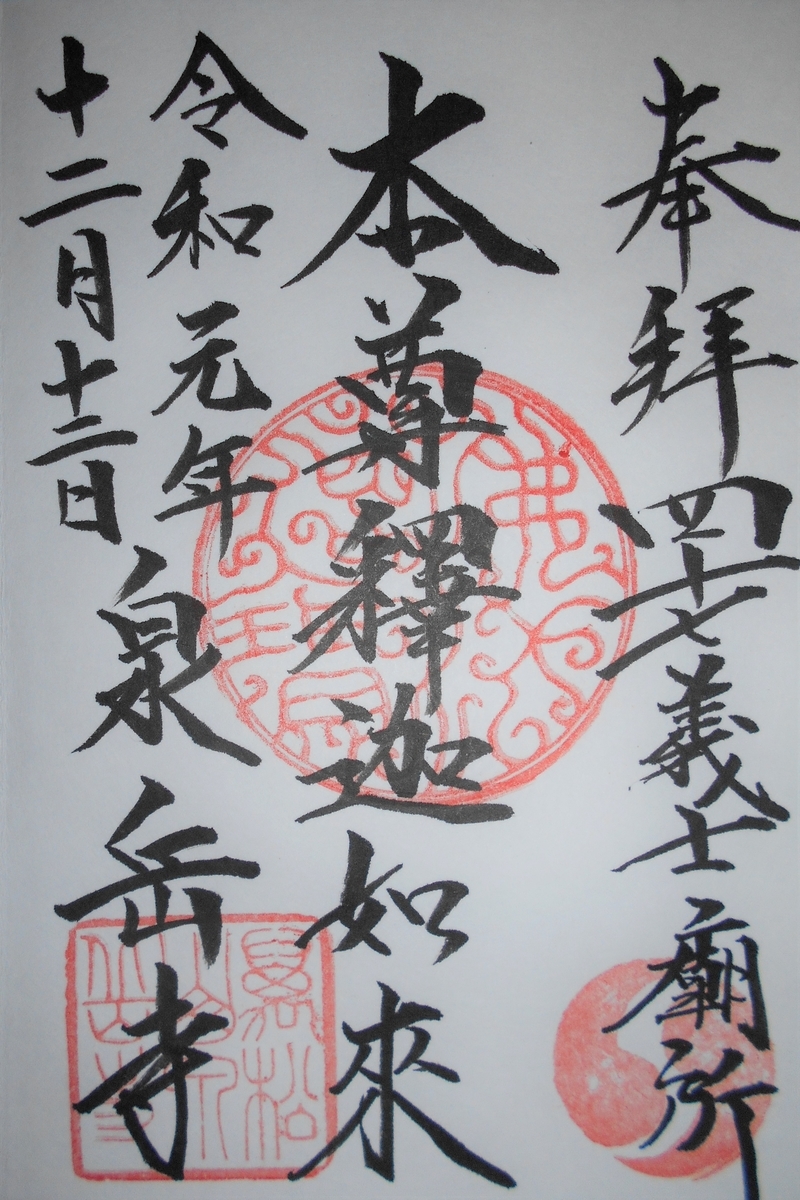 奉拜 四十七義士廟所
本尊釋迦如來
令和元年
十二月十二日
泉岳寺